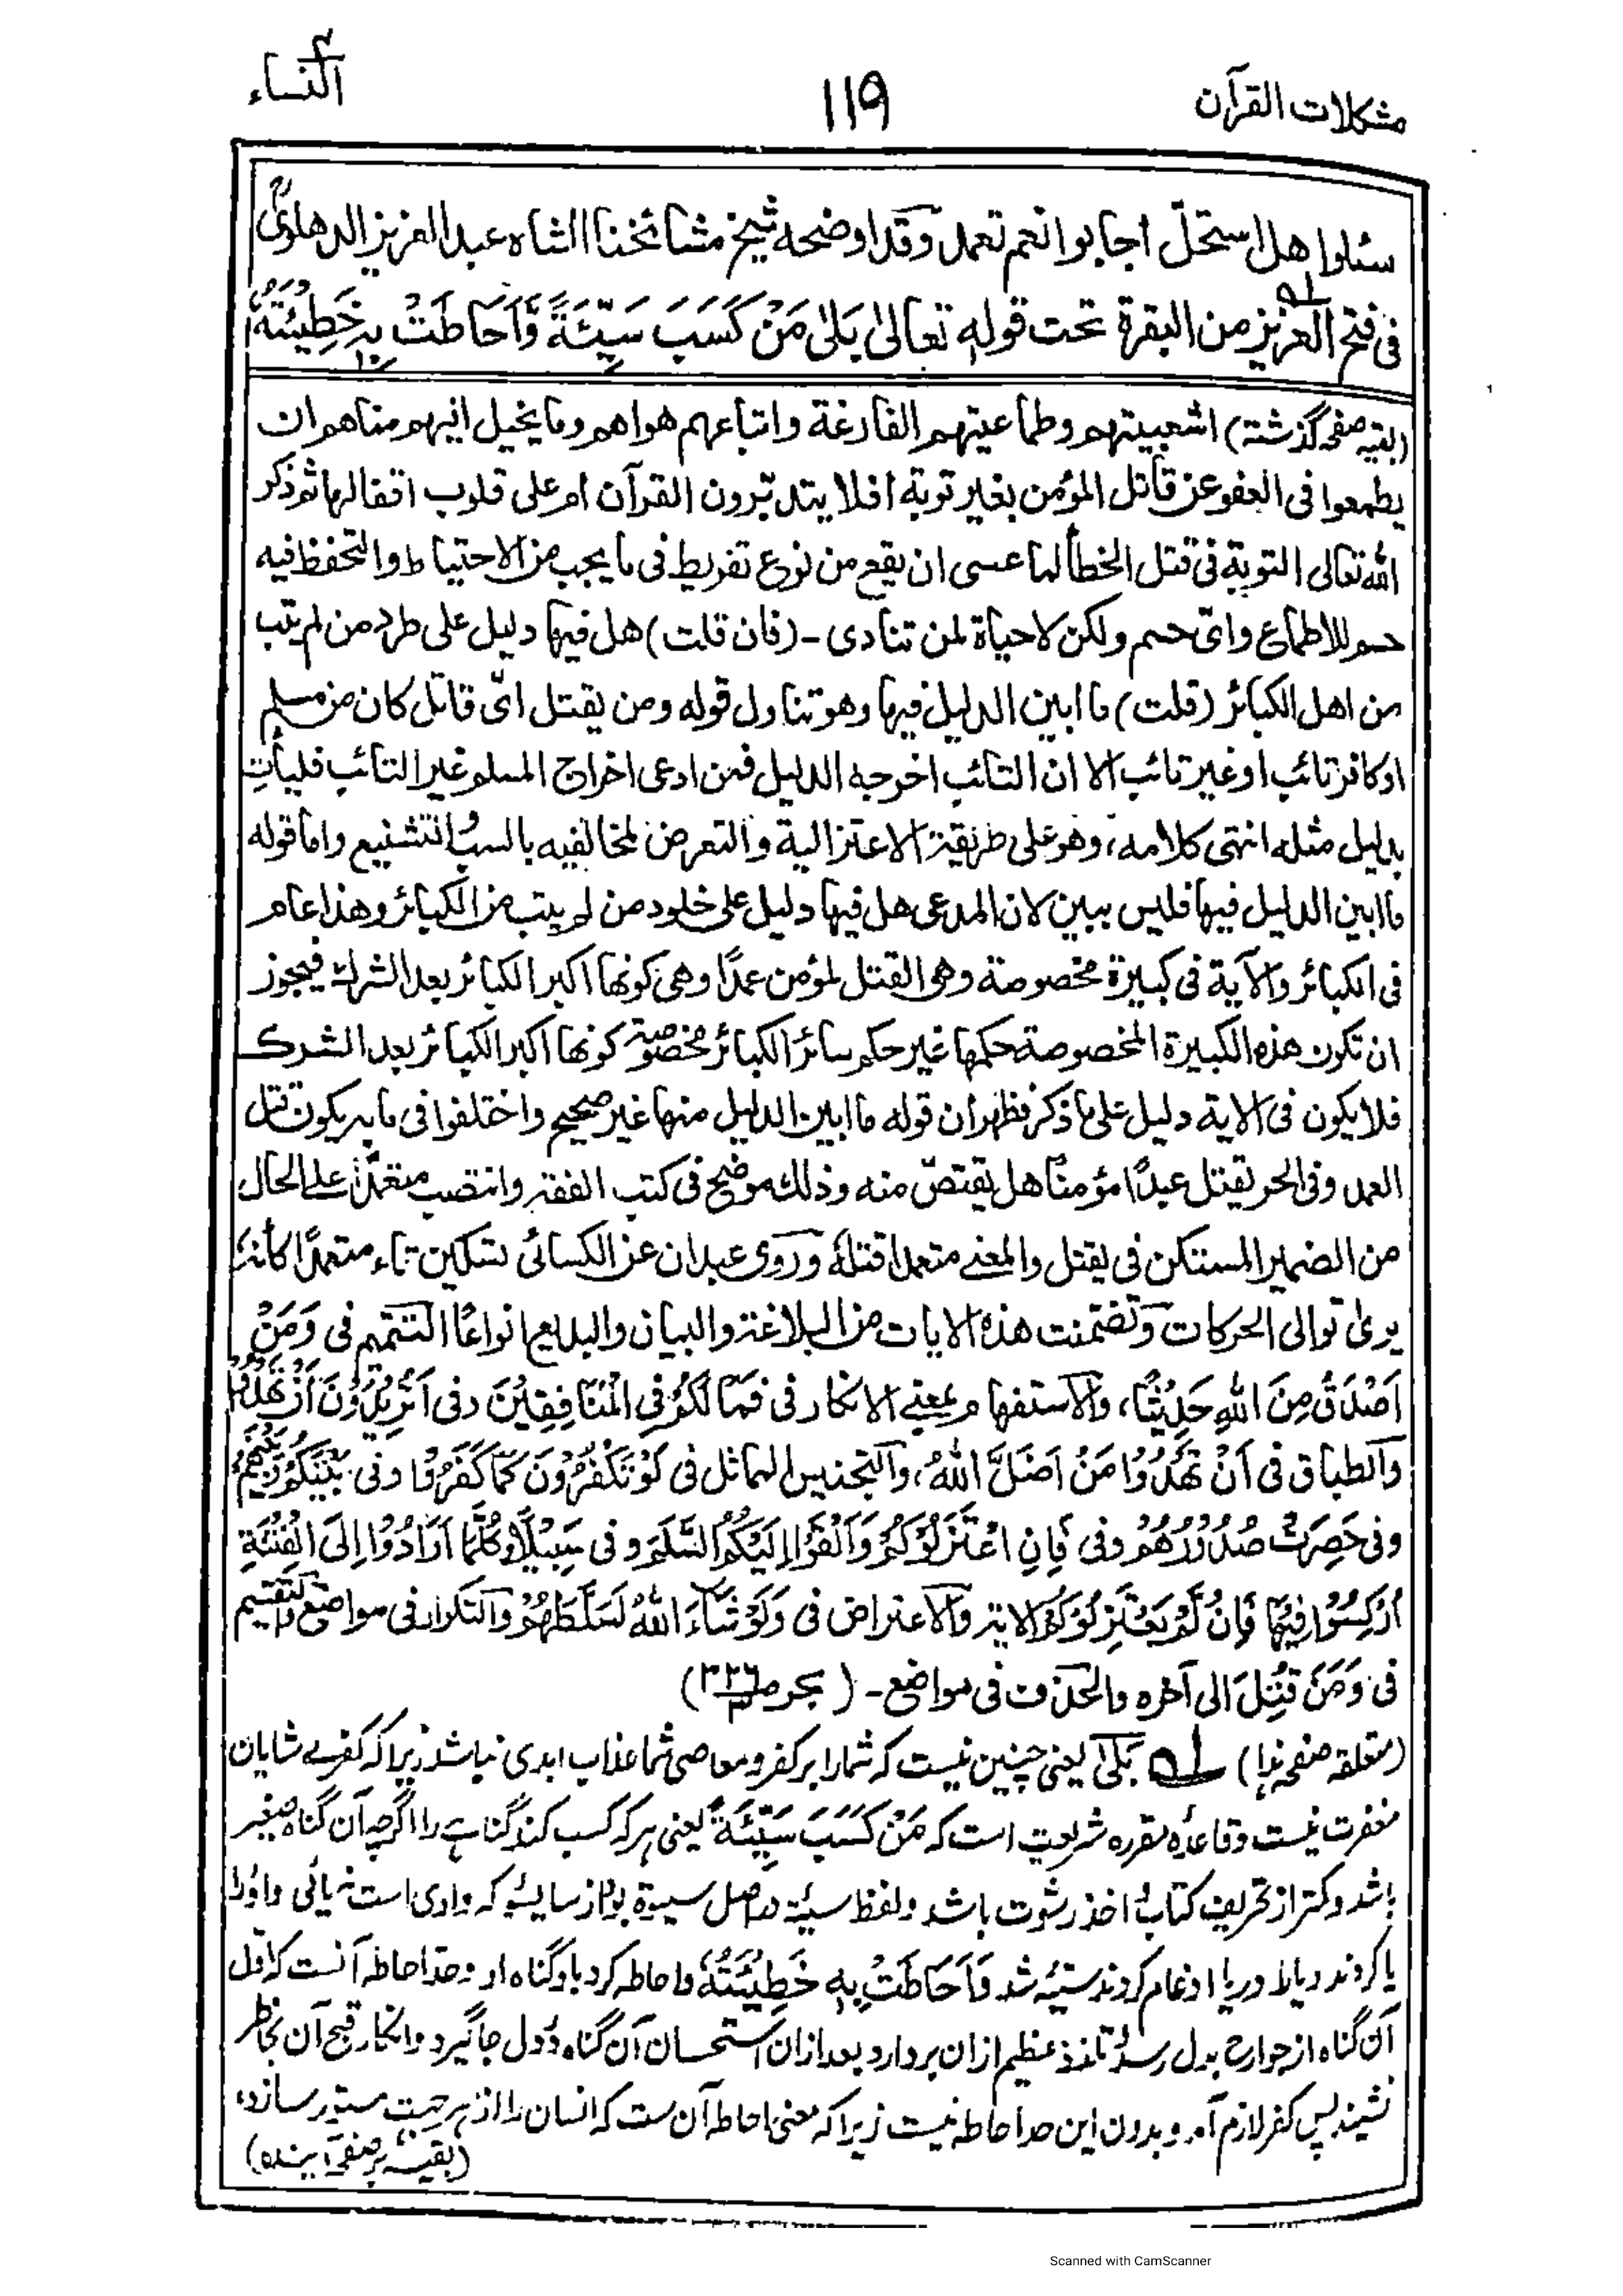 مشکلات القرآن
۱۱۹
النساء
سئلوا هل استحلّ اجابوا نعم تعمد وقد اوضحه شیخ مشائخنا الشاه عبد العزیز الدهلویؒ
فی فتح العزیز من البقرة تحت قوله تعالیٰ بَلیٰ مَنْ کَسَبَ سَیِّئَةً وَّاَحَاطَتْ بِهٖ خَطِیْئَتُهٗ
(بقیه صفحه گذشته) اشعبیتهم وطماعیتهم الفارغة واتباعهم هواهم وما یخیل الیهم مناهم ان
یطمعوا فی العفو عن قاتل المؤمن بغیر توبة افلا یتدبّرون القرآن ام علی قلوب اقفالها ثم ذکر
الله تعالی التوبة فی قتل الخطأ لما عسی ان یقع من نوع تفریط فی ما یجب من الاحتیاط والتحفظ فیه
حسم للاطماع وایّ حسم ولکن لا حیاة لمن تنادی - (فان قلت) هل فیها دلیل علی طرد من لم یتب
من اهل الکبائر (قلت) ما ابین الدلیل فیها وهو تناول قوله ومن یقتل ایّ قاتل کان من مسلم
او کافر تائب او غیر تائب الا ان التائب اخرجه الدلیل فمن ادعی اخراج المسلم غیر التائب فلیأتِ
بدلیل مثله انتهی کلامه، وهو علی طریقة الاعتزالیة والتعرض لمخالفیه بالسب والتشنیع واما قوله
ما ابین الدلیل فیها فلیس ببین لان المدعی هل فیها دلیل علی خلود من لم یتب من الکبائر وهذا عام
فی الکبائر والآیة فی کبیرة مخصوصة وهی القتل لمؤمن عمدًا وهی کونها اکبر الکبائر بعد الشرك فیجوز
ان تکون هذه الکبیرة المخصوصة حکمها غیر حکم سائر الکبائر مخصوصیة کونها اکبر الکبائر بعد الشرک
فلا یکون فی الایة دلیل علی ما ذکر فظهر ان قوله ما ابین الدلیل منها غیر صحیح واختلفوا فی ما به یکون قتل
العمد وفی الحر یقتل عبدًا مؤمنًا هل یقتصّ منه وذلك موضح فی کتب الفقه وانتصب متعمدًا علی الحال
من الضمیر المستکن فی یقتل والمعنی متعمدا قتلهٗ وروی عبدان عن الکسائی تسکین تاء متعمدًا کأنه
یریٰ توالی الحرکات وتضمنت هذه الایات من البلاغة والبیان والبدیع انواعًا التتمیم فی وَمَنْ
اَصْدَقُ مِنَ اللهِ حَدِیْثًا، والاستفهام بمعنی الانکار فی فَمَا لَکُمْ فِی الْمُنَافِقِیْنَ وفی اَتُرِیْدُوْنَ اَنْ تَهْدُوْا
والطباق فی اَنْ تَهْدُوْا مَنْ اَضَلَّ اللهُ، والتجنیس المماثل فی لَوْ تَکْفُرُوْنَ کَمَا کَفَرُوْا وفی بَیْنَکُمْ وَبَیْنَهُمْ
وفی حَصِرَتْ صُدُوْرُهُمْ وفی فَاِنِ اعْتَزَلُوْکُمْ وَاَلْقَوْا اِلَیْکُمُ السَّلَمَ وفی سَبِیْلًا، کُلَّمَا اَرَادُوْا اِلَی الْفِتْنَةِ
اُرْکِسُوْا فِیْهَا فَاِنْ لَّمْ یَعْتَزِلُوْکُمْ الایة، والاعتراض فی وَلَوْ شَاءَ اللهُ لَسَلَّطَهُمْ والتکرار فی مواضع والتقسیم
فی وَمَنْ قَتَلَ الی آخره والحذف فی مواضع - (بحر
(متعلقه صفحه هذا) له بَلیٰ یعنی چنین نیست که شمارا بر کفر و معاصی شما عذاب ابدی نباشد زیرا که کفر بے شایان
مغفرت نیست وقاعده مقرره شریعت است که مَنْ کَسَبَ سَیِّئَةً یعنی هر که کسب کند گناہے را اگرچه آن گناه صغیر
باشد وکمتر از تحریف کتاب و اخذ رشوت باشد ولفظ سیئة دراصل سیوءة بود از ساء یسوء که وادی است نه یائی واو را
یا کردند و یا را در یا ادغام کردند سیّئه شد وَاَحَاطَتْ بِهٖ خَطِیْئَتُهٗ واحاطه کرد باو گناه او وحد احاطه آنست که اول
آن گناه از جوارح بدل رسد و تلذذ عظیم ازان بردارد بعد ازان استحسان آن گناه در دل جا گیرد و انکار قبح آن بخاطر
نشیند پس کفر لازم آمد و بدون این حد احاطه نیست زیرا که معنی احاطه آن ست که انسان را از هر جهت مستور سازد،
(بقیه بر صفحه آینده)
Scanned with CamScanner